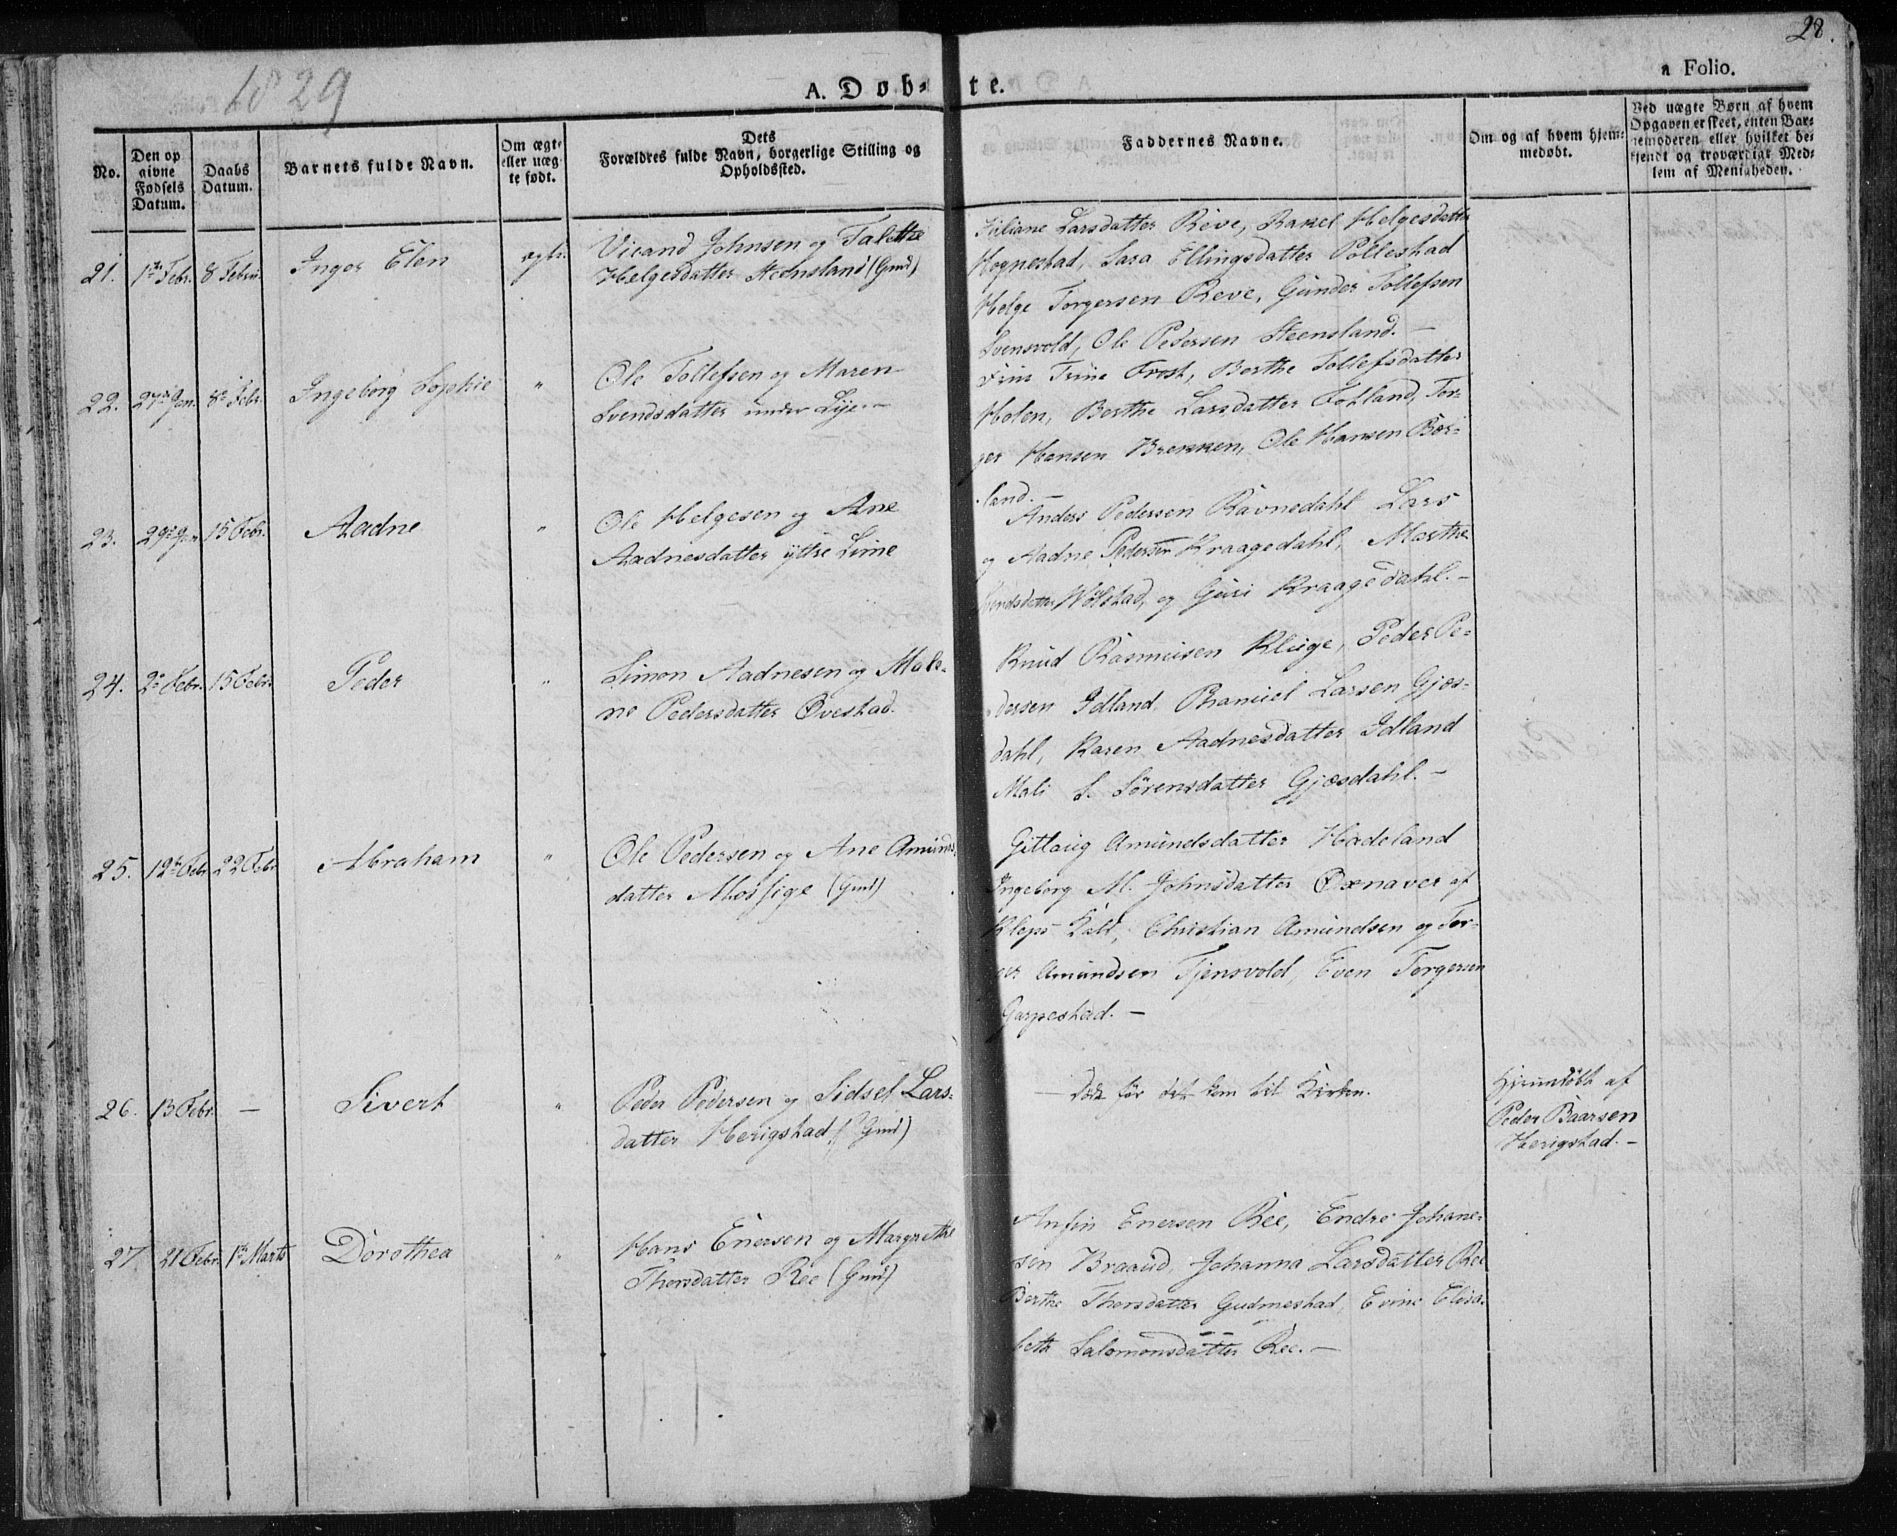 28.
1829
A. Døb-
te.
a Folio.
No.
Den op
givne
Fødsels
Datum.
Daabs
Datum.
Barnets fulde Navn.
Om ægte
eller uæg-
te født.
Dets
Forældres fulde Navn, borgerlige Stilling og
Opholdssted.
Faddernes Navne.
Om og af hvem hjem-
medøbt.
Ved uægte Børn af hvem
Opgaven er skeet, enten Bar-
nemoderen eller hvilket be-
kjendt og troværdigt Med-
lem af Menigheden.
21. 1te Febr. 8 Febru. Inger Elen ægte. Vicand Johnsen og Talethe
Helgesdatter Steensland (Gmd)
Juliane Larsdatter Reve, Rakel Helgesdatter
Hognestad, Sara Ellingsdatter Pollestad
Helge Torgersen Reve, Gunder Tollefsen
Svensvold, Ole Pedersen Steensland.-
22. 27de Jan. 8de Febr. Ingeborg Sophie " Ole Tollefsen og Maren
Svendsdatter under Lye.-
Trine Frost, Berthe Tollefsdatter
Holen, Berthe Larsdatter Fotland, Tor-
ger Hansen Brekken, Ole Hansen Bør-
land.-
23. 29de Jan 15 Febr. Aadne " Ole Helgesen og Ane
Aadnesdatter yttre Lime
Anders Pedersen Ravnedahl Lars
og Aadne Pedersen Kraagedahl, Marthe
Svendsdatter Wolstad, og Guri Kraagedahl.-
24. 2de Febr. 15 Febr. Peder " Simon Aadnesen og Male-
ne Pedersdatter Øvestad.
Knud Rasmusen Kluge, Peder Pe-
dersen Idland Samuel Larsen Gjes-
dahl, Karen Aadnesdatter Idland
Mali S. Sørensdatter Gjesdahl.-
25. 12te Febr 22 Febr Abraham " Ole Pedersen og Ane Amunds-
datter Mossige (Gmd)
Gitlaug Amundsdatter Hadeland
Ingeborg M. Johnsdatter Øxnaver af
Klep Kald, Christian Amundsen og Tor-
ger Amundsen Tjensvold, Even Torgersen
Garpestad.-
26. 13 Febr. - Sivert " Peder Pedersen og Sidsel Lars-
datter Herigstad (Gmd)
- Døde før det kom til Kirken.
Hjemmedøbt af
Peder Baarsen
Herigstad.-
27 21 Febr. 1te Marts Dorothea " Hans Enersen og Margrethe
Thorsdatter Ree (Gmd)
Anfin Enersen Ree, Endre Johane-
sen Braaud, Johanna Larsdatter Ree
Berthe Thorsdatter Gudmestad, Elisa-
beth Salomonsdatter Ree.-